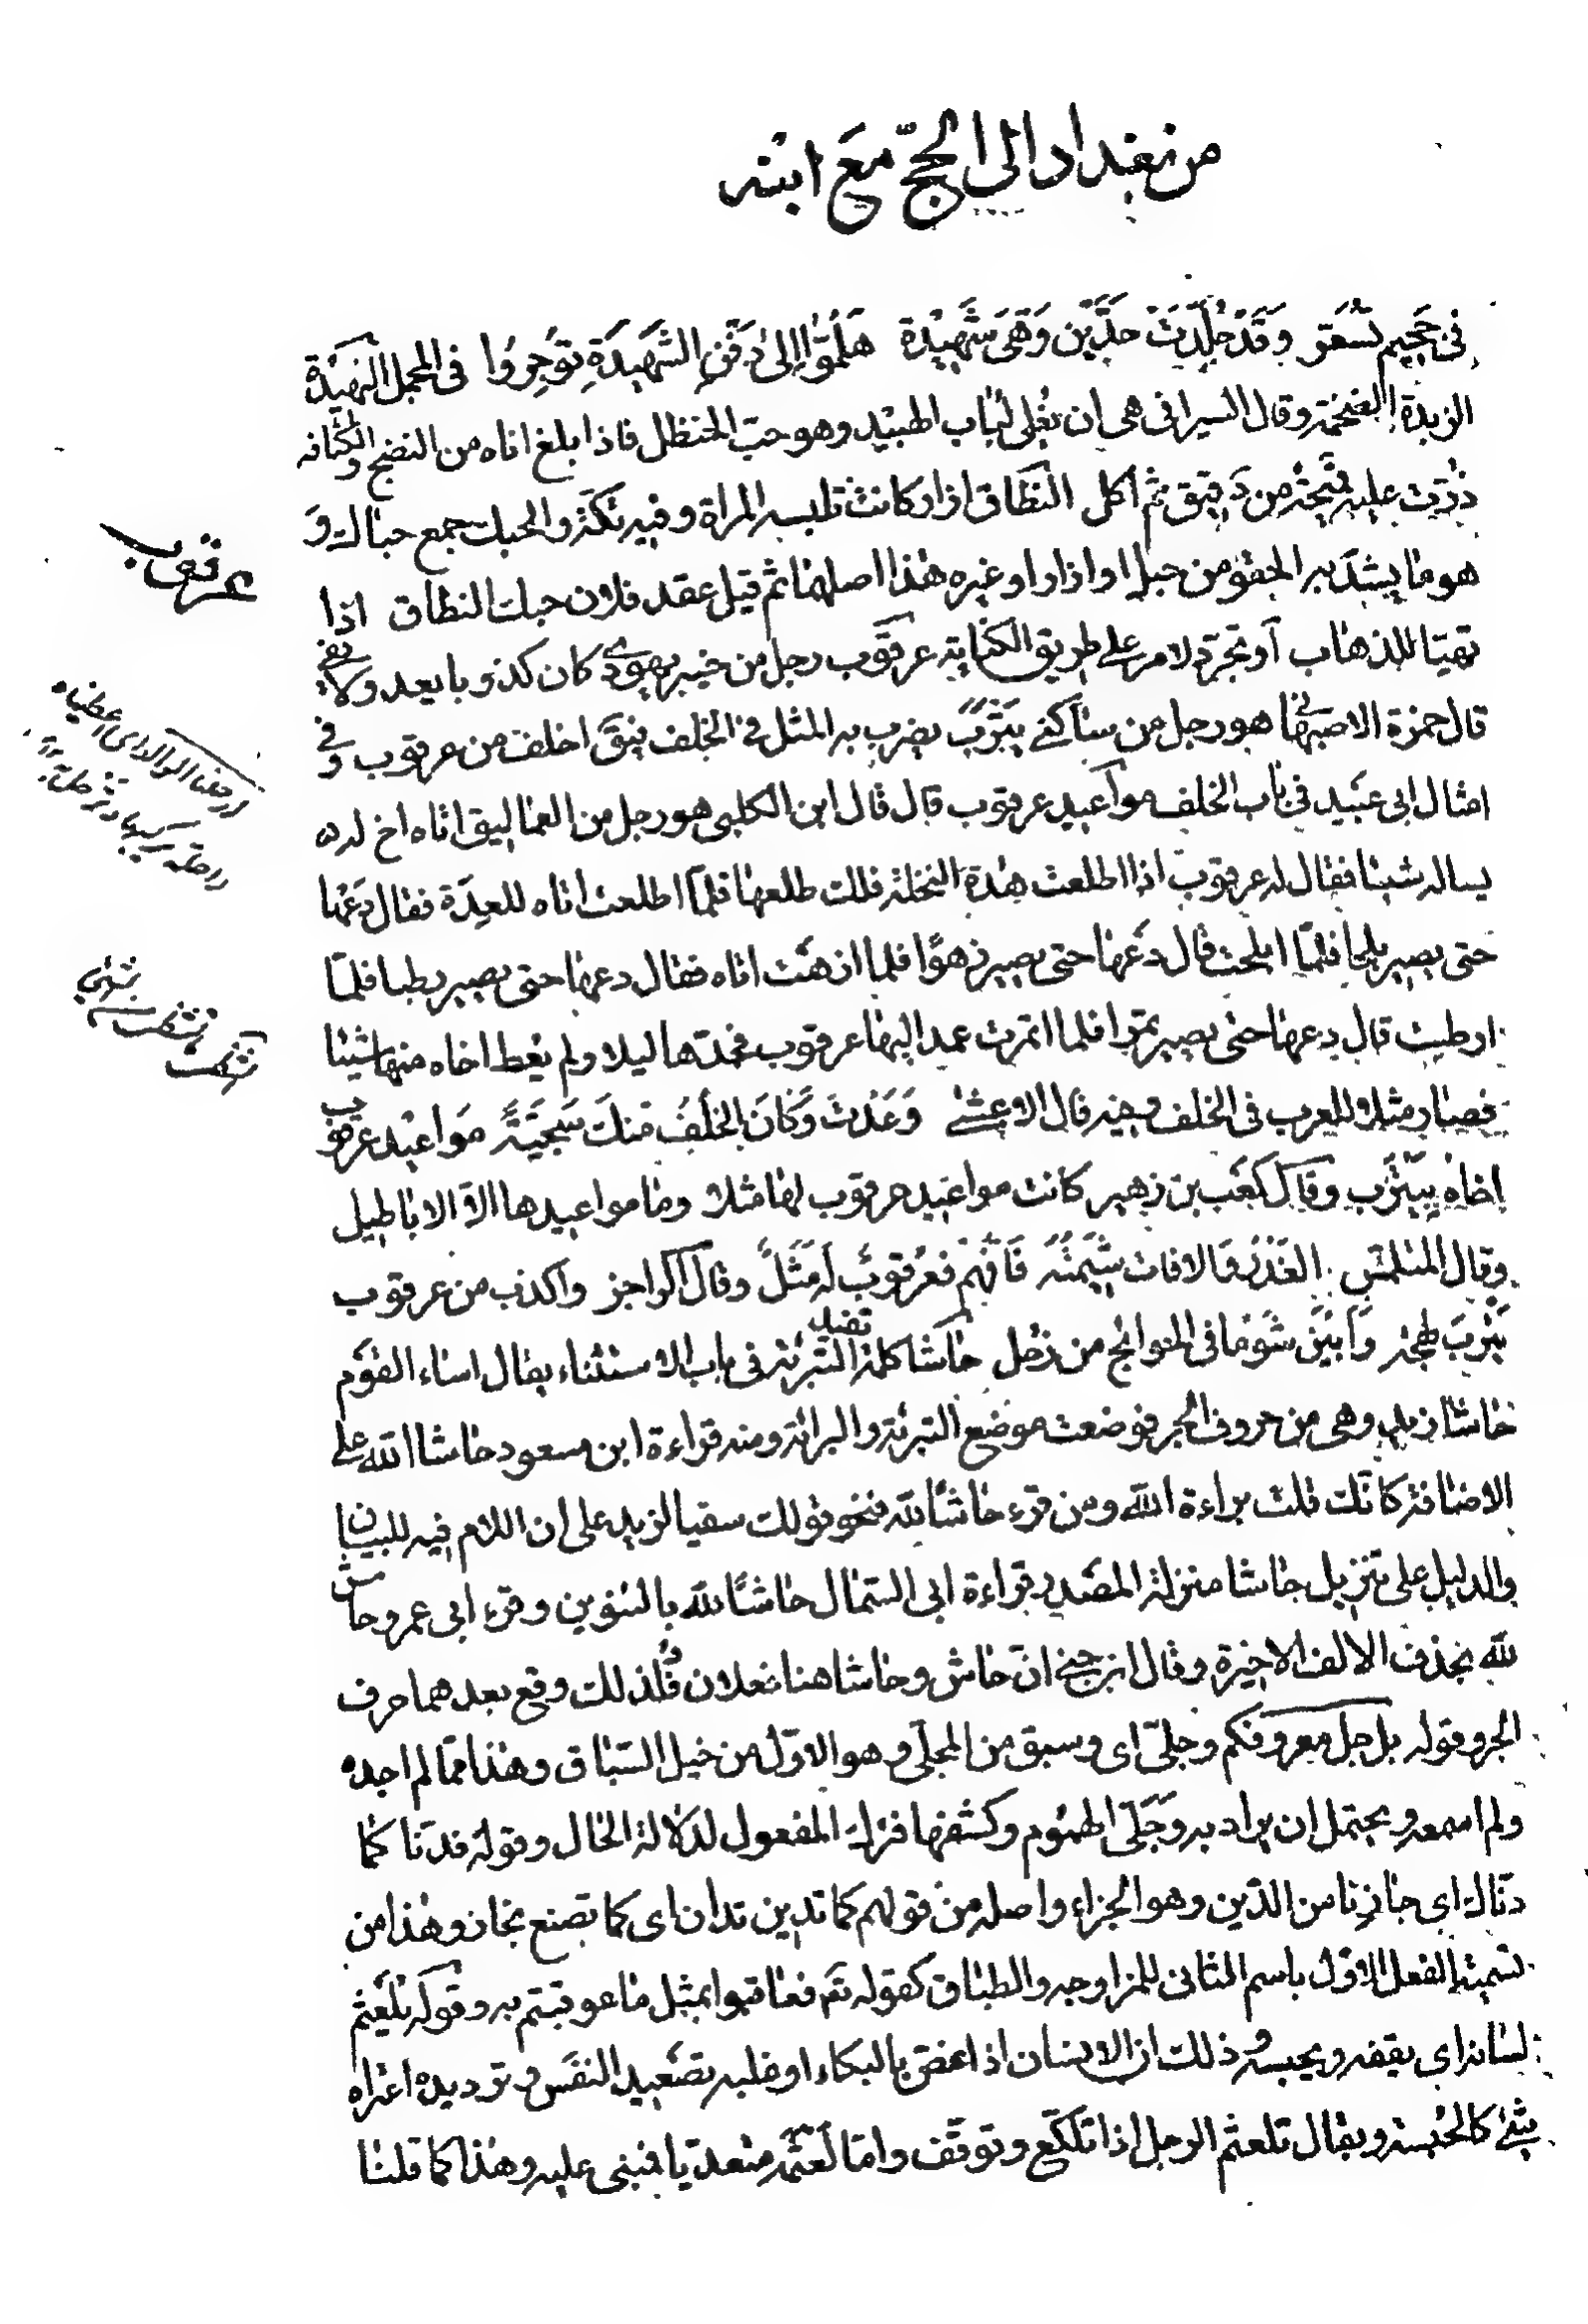 من بغداد الى الحجّ مع ابنه
فى جحيم تسعّر وَقَدْ جُلِدَتْ حدَّيْن وَهَىَ شَهِيْدة هَلُمُّوا اِلىٰ دَفْنِ الشَهِيدَةِ تُوجِروُا فى المجمل النهيْدة
الزبدة الضخمة وقال السيرافى هى ان يغلى لباب الهبيد وهو حبّ الحنظل فاذا بلغ اناه من النضج والكثافه
ذُرّت عليه قميحة من دَقيق ثم اكل النطاق ازار كانت تلبسه المراة وفيه تكة والحبك جمع حباك وَ
هو ما يشدّ به الحقو من حبل او ازار او غيره هذا اصلهما ثم قيل عقد فلان حبك النطاق اذا
تهيّا للذهاب او تجرّد لامر على طريق الكناية عرقوب رجل من خيبر يهودىّ كان كذوبا يعد ولا يفى
قال حمزة الاصبهانى هو رجل من ساكنى يَتْرَبَ يضرب به المثل فى الخلف فيقَ اخلف من عرقوب وفى
امثال ابى عبيد فى باب الخلف مواعيد عرقوب قال قال ابن الكلبى هو رجل من العماليق اتاه اخ له
يساله شيئا فقال له عرقوب اذا اطلعت هذة النخلة فلك طلعها فلمّا اطلعت اتاه للعِدَة فقال دَعْها
حتى يصير بلحا فلمّا ابلحت قال دَعْها حتى يصير زهوًا فلما ازهت اتاه فقال دعها حتى يصير رطبا فلمّا
ارطبت قال دعها حتى يصير تمرا فلما اتمرت عمد اليها عرقوب فجدّها ليلا ولم يعط اخاه منها شيئا
فصار مثلا للعرب فى الخلف وفيه قال الاعشى وَعَدْتَ وَكَانَ الخُلْفُ مِنْكَ سَجيَّةً مَوَاعْيد عرقوب
اخاه بِيَتْرَب وقال كعْب بن زهير كانت مواعيد عرقوب لها مثلا وما مواعيدها الا الاباطيل
وقال المتلمّس الغَدْرُ وَالافات شِيْمَتُه فَافْهَمْ فعُرقوبٌ لَه مَثَلٌ وقال الراجز واكذب من عرقوب
يَتْرَبَ لهجة وَاَبْيَنَ شؤمًا فى الحوائج من زحل حاشا كلمة تفيد التبرئة فى باب الاستثناء يقال اساء القوم
حاشا زيدٍ وهى من حروف الجر فوضعت موضع التبرئة والبراءة ومنه قراءة ابن مسعود حاشا الله على
الاضافة كانّك قلت براءة الله ومن قرء حاشًا لله فنحو قولك سقيا لزيد على ان اللام فيه للبيان
والدليل على تنزيل حاشا منزلة المصدر قراءة ابى السّمال حاشًا لله بالتنوين وقرء ابى عمرو حاش
لله بحذف الالف الاخيرة وقال ابن جنى انّ حاش وحاشا هنا فعلان فلذلك وقع بعدهما حرف
الجر وقوله بل جلّ معروفكم وجلّى اى وسبق من المجلّى وهو الاوّل من خيل السّباق وهذا ممّا لم اجده
ولم اسمعه ويحتمل ان يراد به وَجَلَّى الهموم وكشفها فترك المفعول لدلالة الحال وقوله فدنّا كما
دنّاك اى جازنا من الدّين وهو الجزاء واصله من قولهم كما تدين تدان اى كما تصنع تجاز وهذا من
تسمية الفعل الاوّل باسم الثانى للمزاوجه والطباق كقوله تعَ فعاقبوا بمثل ما عوقبتم به وقوله يلعثم
لسانه اى يقفه ويحبسه وذلك ان الانسان اذا غصّ بالبكاء او غلبه تصعيد النفَس وترديده اعتراه
شئ كالحُبسة ويقال تلعثم الرجل اذا تلكّع وتوقّف وامّا لَعْثَمَ متعدّيا فبنى عليه وهذا كما قلنا
عرقوب